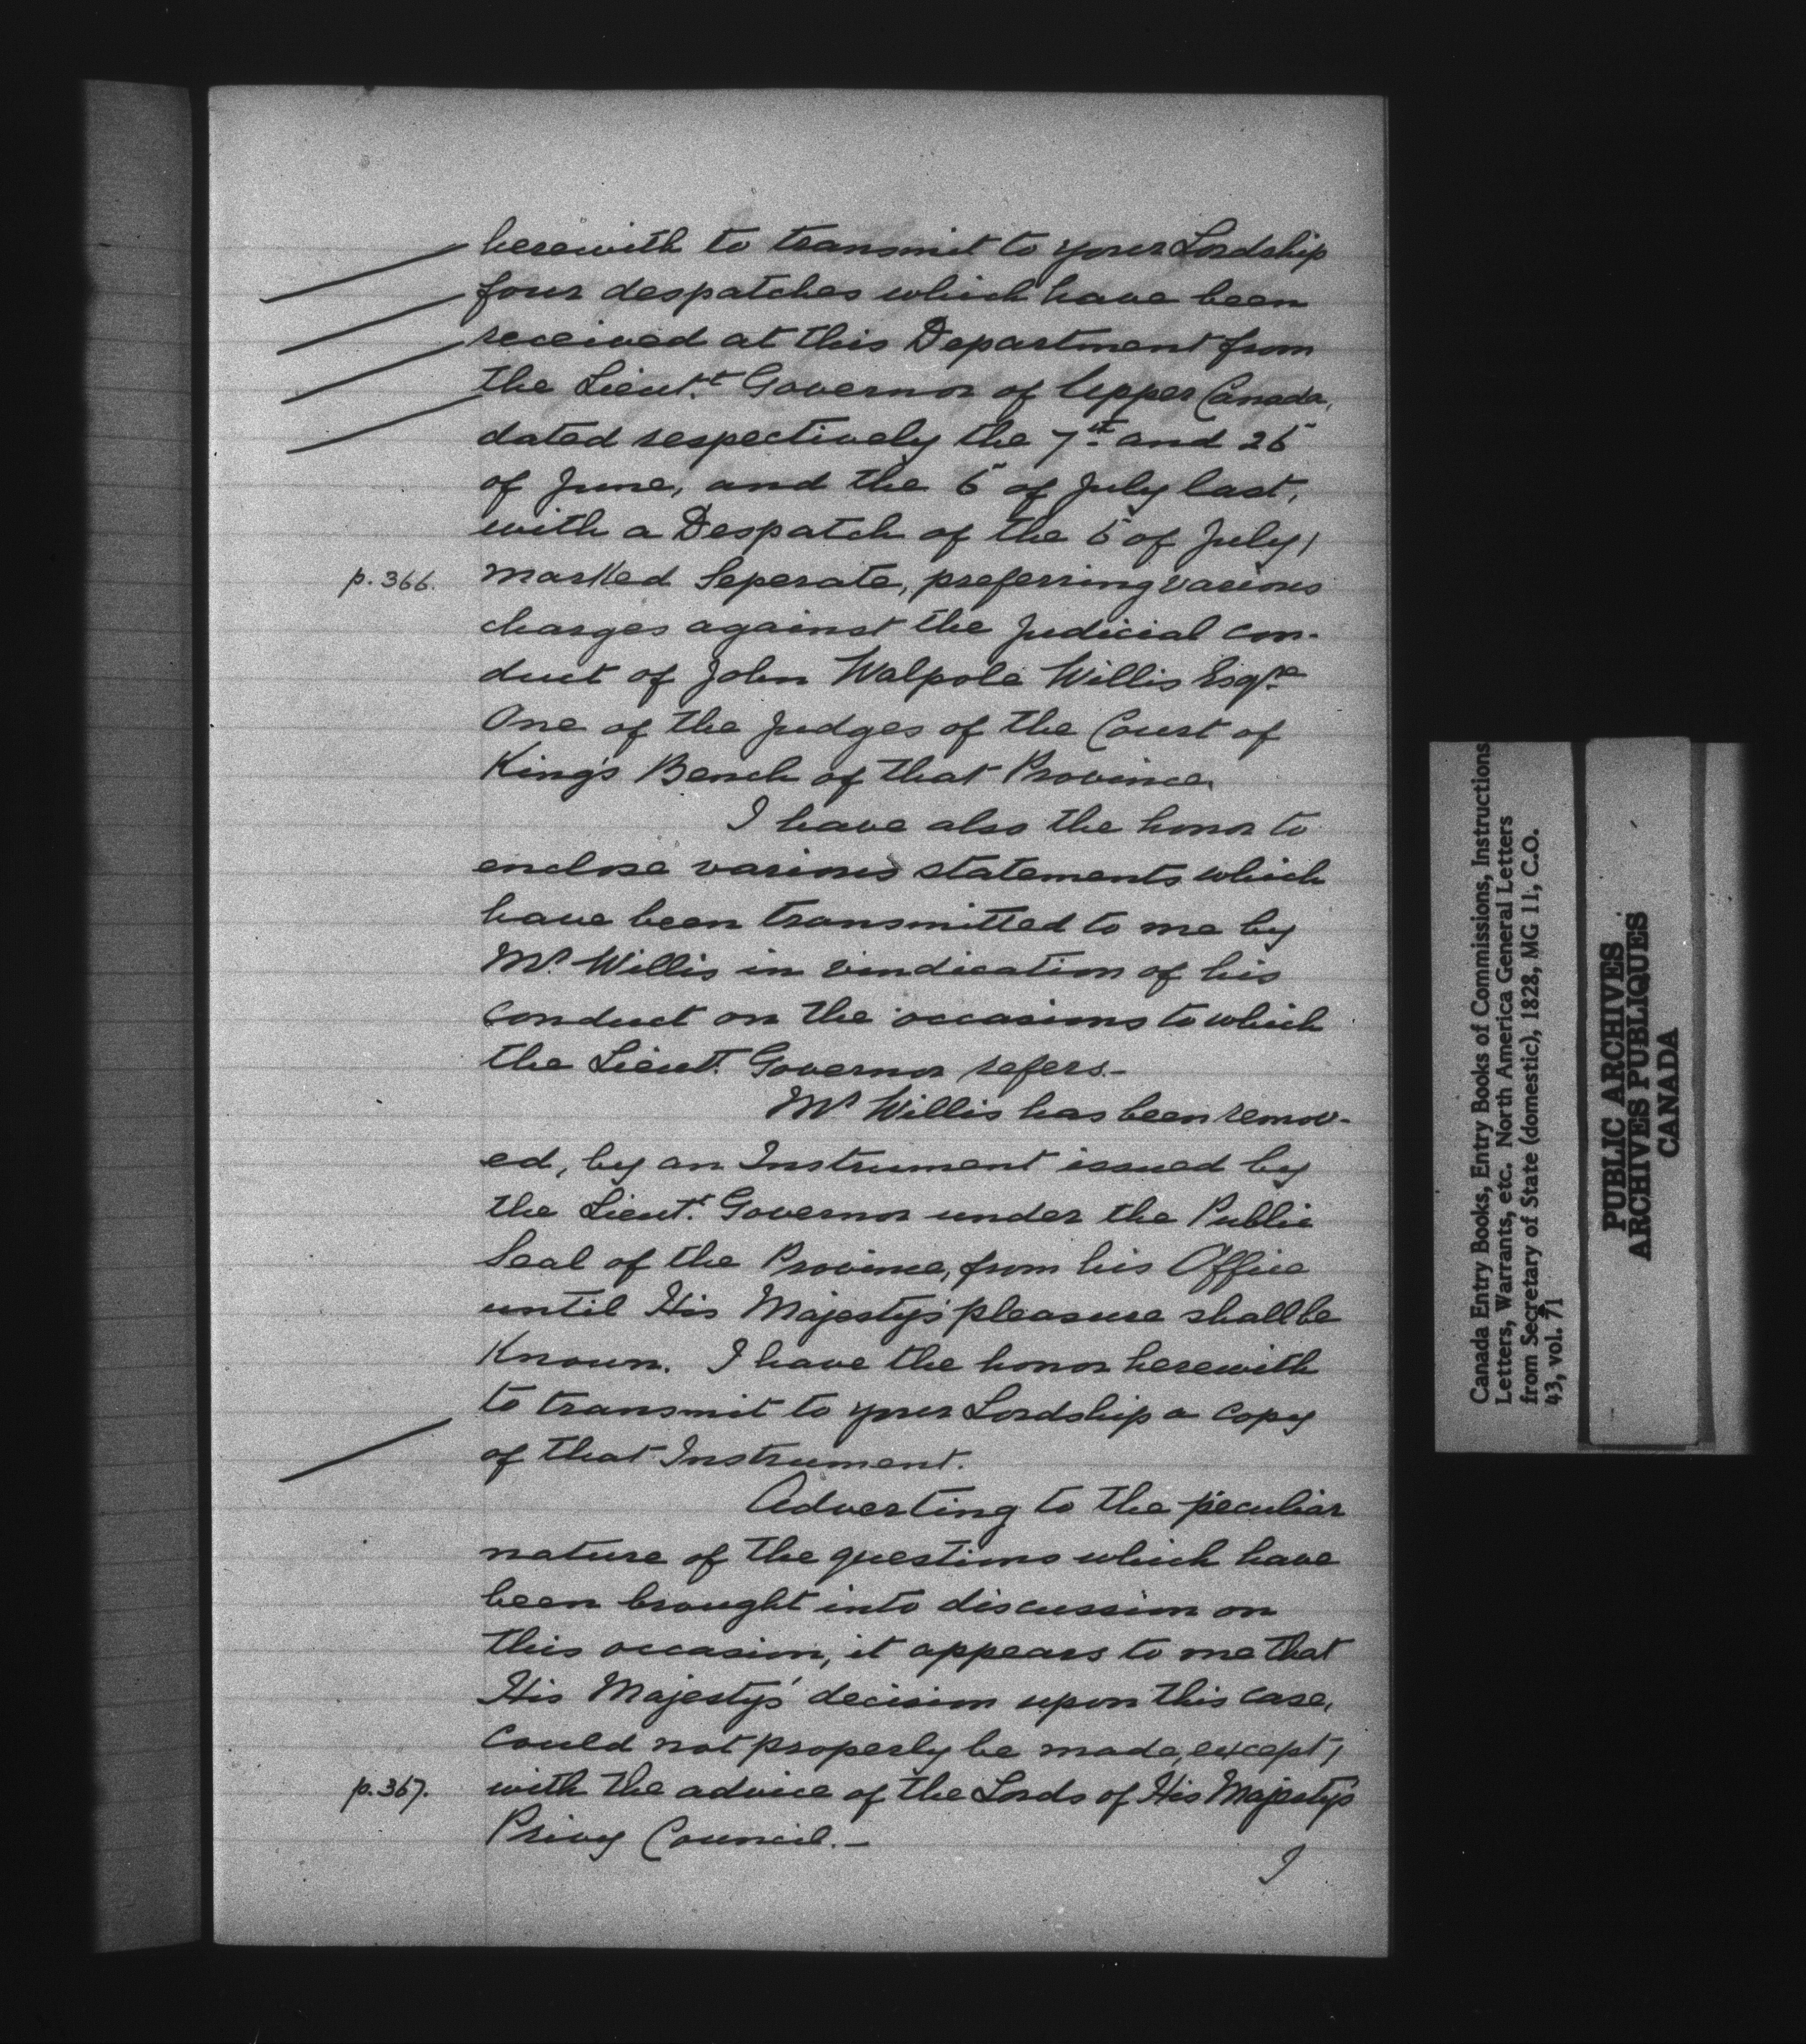 herewith to transmit to your Lordship
four despatches which have been
received at this Department from
the Lieut.t Governor of Upper Canada,
dated respectively the 7th and 25
of June, and the 5 of July last,
with a Despatch of the 5 of July,
p. 366. marked Seperate, preferring various
charges against the Judicial con-
duct of John Walpole Willis Esqre
One of the Judges of the Court of
King's Bench of that Province.
I have also the honor to
enclose various statements which
have been transmitted to me by
Mr Willis in vindication of his
conduct on the occasions to which
the Lieut. Governor refers.-
Mr Willis has been remov-
ed, by an Instrument issued by
the Lieut.t Governor under the Public
Seal of the Province, from his Office
until His Majesty's pleasure shall be
Known. I have the honor herewith
to transmit to your Lordship a copy
of that Instrument.
Adverting to the peculiar
nature of the questions which have
been brought into discussion on
this occasion, it appears to me that
His Majesty's decision upon this case,
could not properly be made, except,
p. 367. with the advice of the Lords of His Majesty's
Privy Council.-
I
Canada Entry Books, Entry Books of Commissions, Instructions
Letters, Warrants, etc. North America General Letters
from Secretary of State (domestic), 1828, MG 11, C.O.
43, vol. 71
PUBLIC ARCHIVES
ARCHIVES PUBLIQUES
CANADA